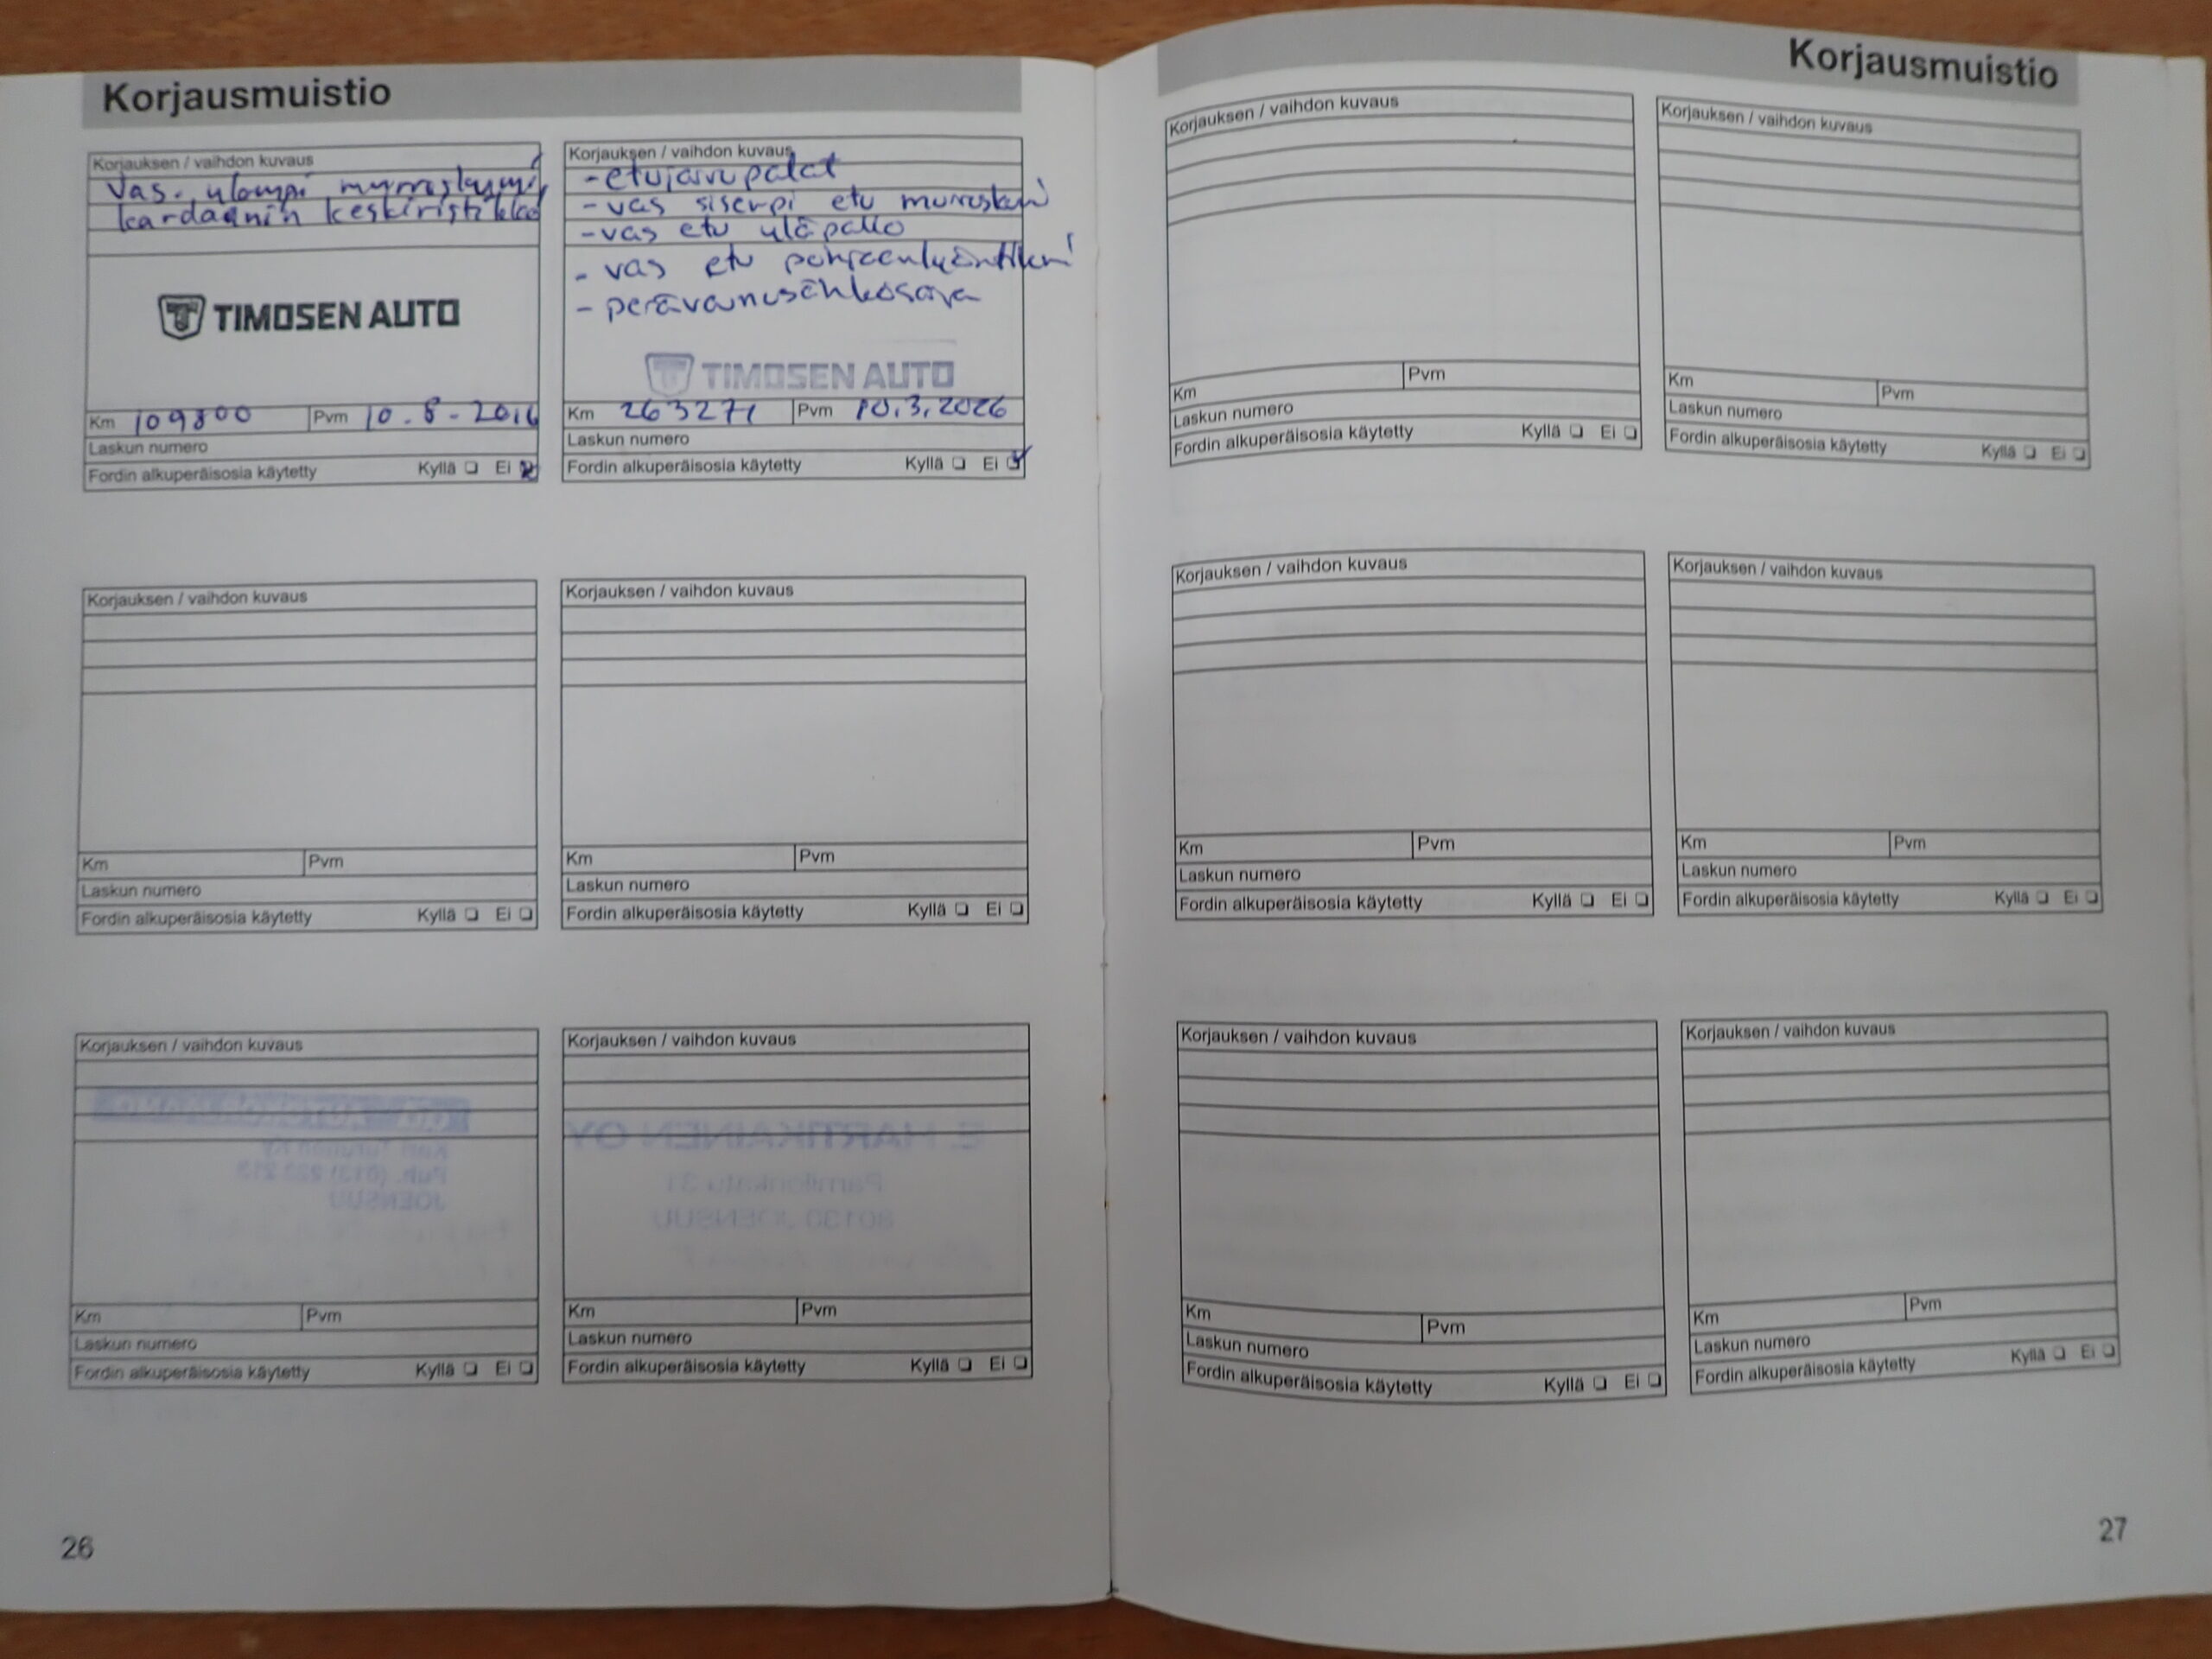 Korjausmuistio
Korjauksen / vaihdon kuvaus
Vas. ulompi
kardaanin keskiristikko
TIMOSEN AUTO
Km 109800 Pvm 10.8-2016
Laskun numero
Fordin alkuperäisosia käytetty Kyllä Ei
Korjauksen / vaihdon kuvaus
- etujarrupalat
- vas sisempi etu
- vas etu yläpallo
- vas etu
-
TIMOSEN AUTO
Km 263271 Pvm 10.3.2026
Laskun numero
Fordin alkuperäisosia käytetty Kyllä Ei
Korjauksen / vaihdon kuvaus
Km Pvm
Laskun numero
Fordin alkuperäisosia käytetty Kyllä Ei
Korjauksen / vaihdon kuvaus
Km Pvm
Laskun numero
Fordin alkuperäisosia käytetty Kyllä Ei
Korjauksen / vaihdon kuvaus
Km Pvm
Laskun numero
Fordin alkuperäisosia käytetty Kyllä Ei
Korjauksen / vaihdon kuvaus
Km Pvm
Laskun numero
Fordin alkuperäisosia käytetty Kyllä Ei
26
Korjausmuistio
Korjauksen / vaihdon kuvaus
Km Pvm
Laskun numero
Fordin alkuperäisosia käytetty Kyllä Ei
Korjauksen / vaihdon kuvaus
Km Pvm
Laskun numero
Fordin alkuperäisosia käytetty Kyllä Ei
Korjauksen / vaihdon kuvaus
Km Pvm
Laskun numero
Fordin alkuperäisosia käytetty Kyllä Ei
Korjauksen / vaihdon kuvaus
Km Pvm
Laskun numero
Fordin alkuperäisosia käytetty Kyllä Ei
Korjauksen / vaihdon kuvaus
Km Pvm
Laskun numero
Fordin alkuperäisosia käytetty Kyllä Ei
Korjauksen / vaihdon kuvaus
Km Pvm
Laskun numero
Fordin alkuperäisosia käytetty Kyllä Ei
27